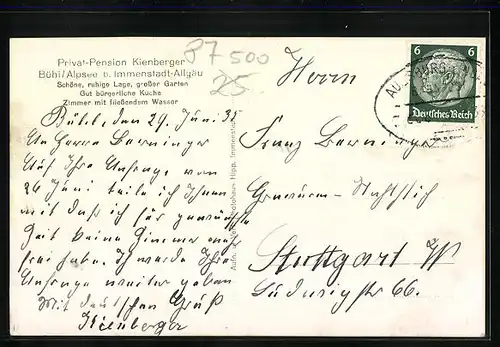 Privat-Pension Kienberger
Bühl/Alpsee b. Immenstadt-Allgäu
Schöne, ruhige Lage, großer Garten
Gut bürgerliche Küche
Zimmer mit fließendem Wasser
87 500
25.
Bühl, den 29. Juni 35
An Herrn Berninger
Auf Ihre Anfrage vom
26 Juni teile ich Ihnen
mit daß ich für gewünschte
Zeit keine Zimmer mehr
frei habe. Ich werde Ihre
Anfrage weiter geben
Mit deutschem Gruß
Kienberger
Herrn
Franz Berninger
Stuttgart W
Ludwigstr 66.
6 6
Deutsches Reich